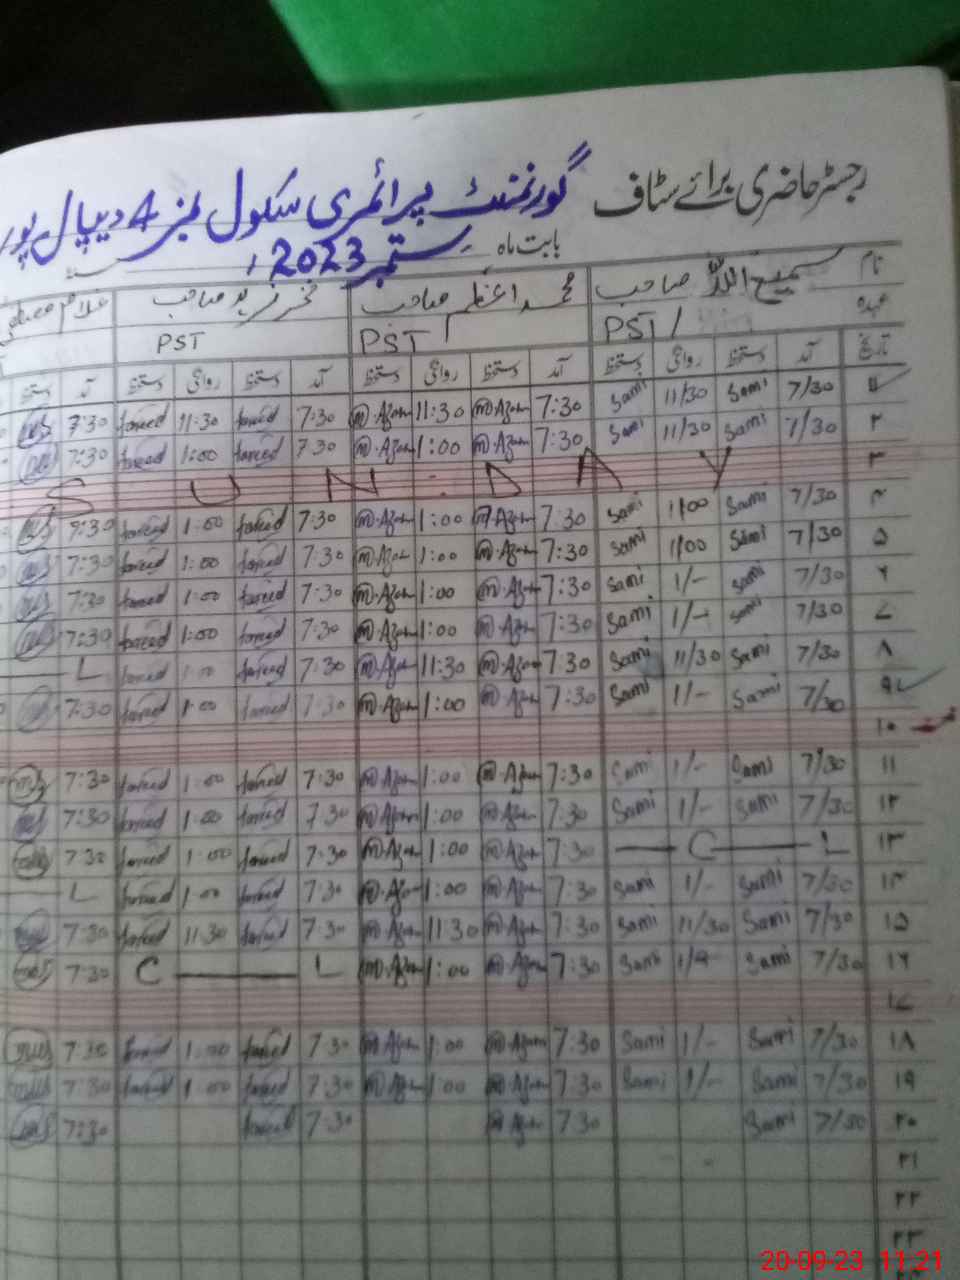 رجسٹر حاضری برائے سٹاف گورنمنٹ پرائمری سکول نمبر 4 دیپال پور
بابت ماہ ستمبر 2023ء
نام سمیع اللہ صاحب محمد اعظم صاحب صاحب غلام
عہدہ PST PST PST
تاریخ آمد دستخط روانگی دستخط آمد دستخط روانگی دستخط آمد دستخط روانگی دستخط آمد دستخط
۱ 7/30 Sami 11/30 Sami 7:30 M.Azam 11:30 M.Azam 7:30 fareed 11:30 fareed 7:30
۲ 7/30 Sami 11/30 Sami 7:30 M.Azam 1:00 M.Azam 7:30 fareed 1:00 fareed 7:30
۳ SUNDAY
۴ 7/30 Sami 1/00 Sami 7:30 M.Azam 1:00 M.Azam 7:30 fareed 1:00 fareed 7:30
۵ 7/30 Sami 1/00 Sami 7:30 M.Azam 1:00 M.Azam 7:30 fareed 1:00 fareed 7:30
۶ 7/30 Sami 1/- Sami 7:30 M.Azam 1:00 M.Azam 7:30 fareed 1:00 fareed 7:30
۷ 7/30 Sami 1/- Sami 7:30 M.Azam 1:00 M.Azam 7:30 fareed 1:00 fareed 7:30
۸ 7/30 Sami 11/30 Sami 7:30 M.Azam 11:30 M.Azam 7:30 fareed fareed L
۹ 7/30 Sami 1/- Sami 7:30 M.Azam 1:00 M.Azam 7:30 fareed 1:00 fareed 7:30
۱۰
۱۱ 7/30 Sami 1/- Sami 7:30 M.Azam 1:00 M.Azam 7:30 fareed 1:00 fareed 7:30
۱۲ 7/30 Sami 1/- Sami 7:30 M.Azam 1:00 M.Azam 7:30 fareed 1:00 fareed 7:30
۱۳ C L 7:30 M.Azam 1:00 M.Azam 7:30 fareed 1:00 fareed 7:30
۱۴ 7/30 Sami 1/- Sami 7:30 M.Azam 1:00 M.Azam 7:30 fareed 1:00 fareed L
۱۵ 7/30 Sami 11/30 Sami 7:30 M.Azam 11:30 M.Azam 7:30 fareed 11:30 fareed 7:30
۱۶ 7/30 Sami Sami 7:30 M.Azam 1:00 M.Azam C L 7:30
۱۷
۱۸ 7/30 Sami 1/- Sami 7:30 M.Azam 1:00 M.Azam 7:30 fareed 1:00 fareed 7:30
۱۹ 7/30 Sami 1/- Sami 7:30 M.Azam 1:00 M.Azam 7:30 fareed 1:00 fareed 7:30
۲۰ 7/30 Sami 7:30 M.Azam 7:30 fareed 7:30
۲۱
۲۲
۲۳
20-09-23 11:21